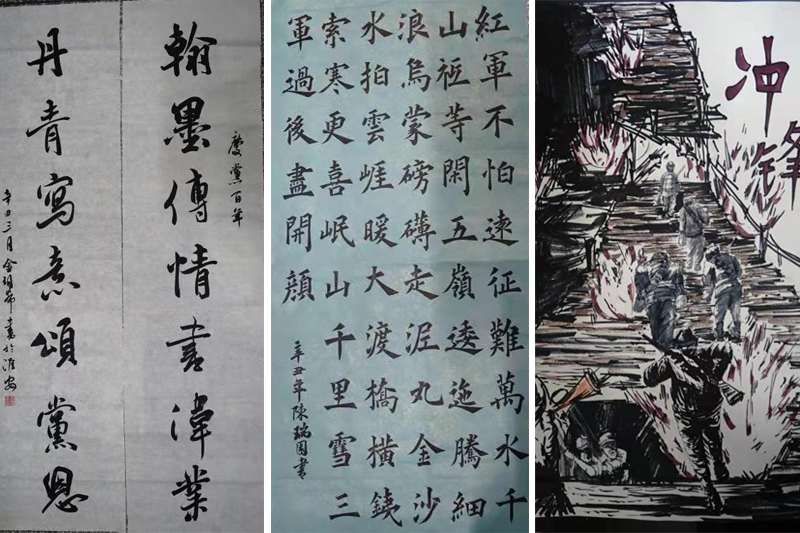 慶黨百年
翰墨傳情書偉業
丹青寫意頌黨恩
辛丑三月金希書於淮安
紅軍不怕遠征難萬水千
山衹等閑五嶺逶迤騰細
浪烏蒙磅礴走泥丸金沙
水拍雲崖暖大渡橋橫鐵
索寒更喜岷山千里雪三
軍過後盡開顔
辛丑年陳瑞國書
冲锋